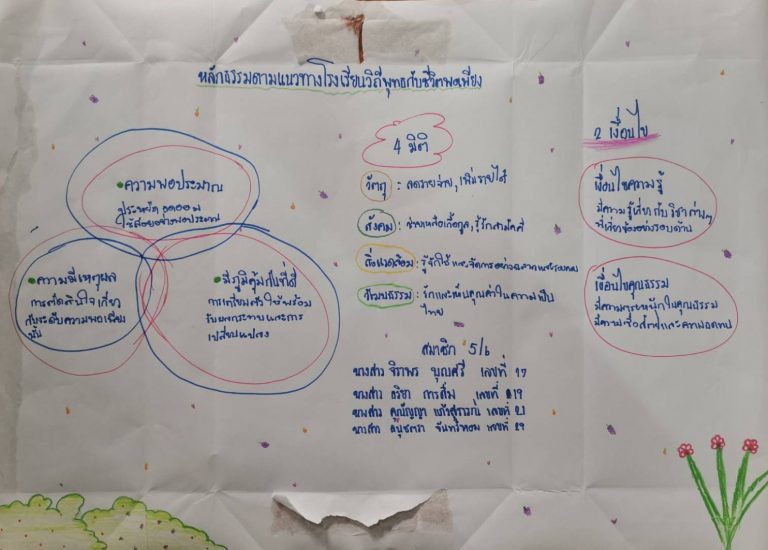 หลักธรรมตามแนวทางโรงเรียนวิถีพุทธกับชีวิตพอเพียง
ความพอประมาณ
ประหยัด อดออม
ใช้สอยอย่างพอประมาณ
ความมีเหตุผล
การตัดสินใจเกี่ยว
กับระดับความพอเพียง
นั้น
มีภูมิคุ้มกันที่ดี
การเตรียมตัวให้พร้อม
รับผลกระทบและการ
เปลี่ยนแปลง
4 มิติ
วัตถุ : ลดรายจ่าย, เพิ่มรายได้
สังคม : ช่วยเหลือเกื้อกูล, รู้รักสามัคคี
สิ่งแวดล้อม : รู้จักใช้และจัดการอย่างฉลาด
วัฒนธรรม : รักและเห็นคุณค่าในความเป็น
ไทย
2 เงื่อนไข
เงื่อนไขความรู้
มีความรู้เกี่ยวกับวิชาต่างๆ
ที่เกี่ยวข้องอย่างรอบด้าน
เงื่อนไขคุณธรรม
มีความตระหนักในคุณธรรม
มีความซื่อสัตย์และความอดทน
สมาชิก 5/6
นางสาว จิราพร บุญศรี เลขที่ 17
นางสาว เลขที่ 19
นางสาว เลขที่ 21
นางสาว จันทร์หอม เลขที่ 29